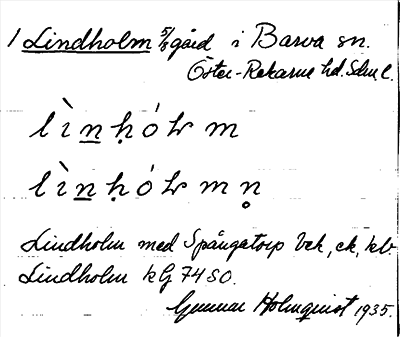 1 Lindholm 5/8 gård i Barva sn.
Öster-Rekarne hd. Sdm l.
lìn̲ḥólr m
lìn̲ḥólr m n̥
Lindholm med Spångatorp bek, ek, kb.
Lindholm kG 74 SO.
Gunnar Holmquist 1935.